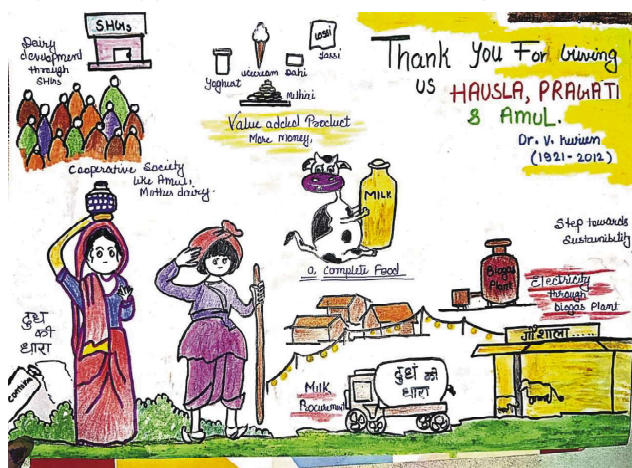 SHGs
Dairy
development
through
SHGs
Cooperative Society
like Amul,
Mother dairy.
Yoghurt
icecream
Dahi
Lassi
Lassi
Value added Product
More money,
Thank You For Giving
us HAUSLA, PRAGATI
& AMUL.
Dr. V. Kurien
(1921-2012)
MILK
a complete Food
Step towards
Sustainibility
Biogas
Plant
Electricity
through
biogas Plant
गौशाला......
दुध
की
धारा
दुध की
धारा
Milk
Procurement